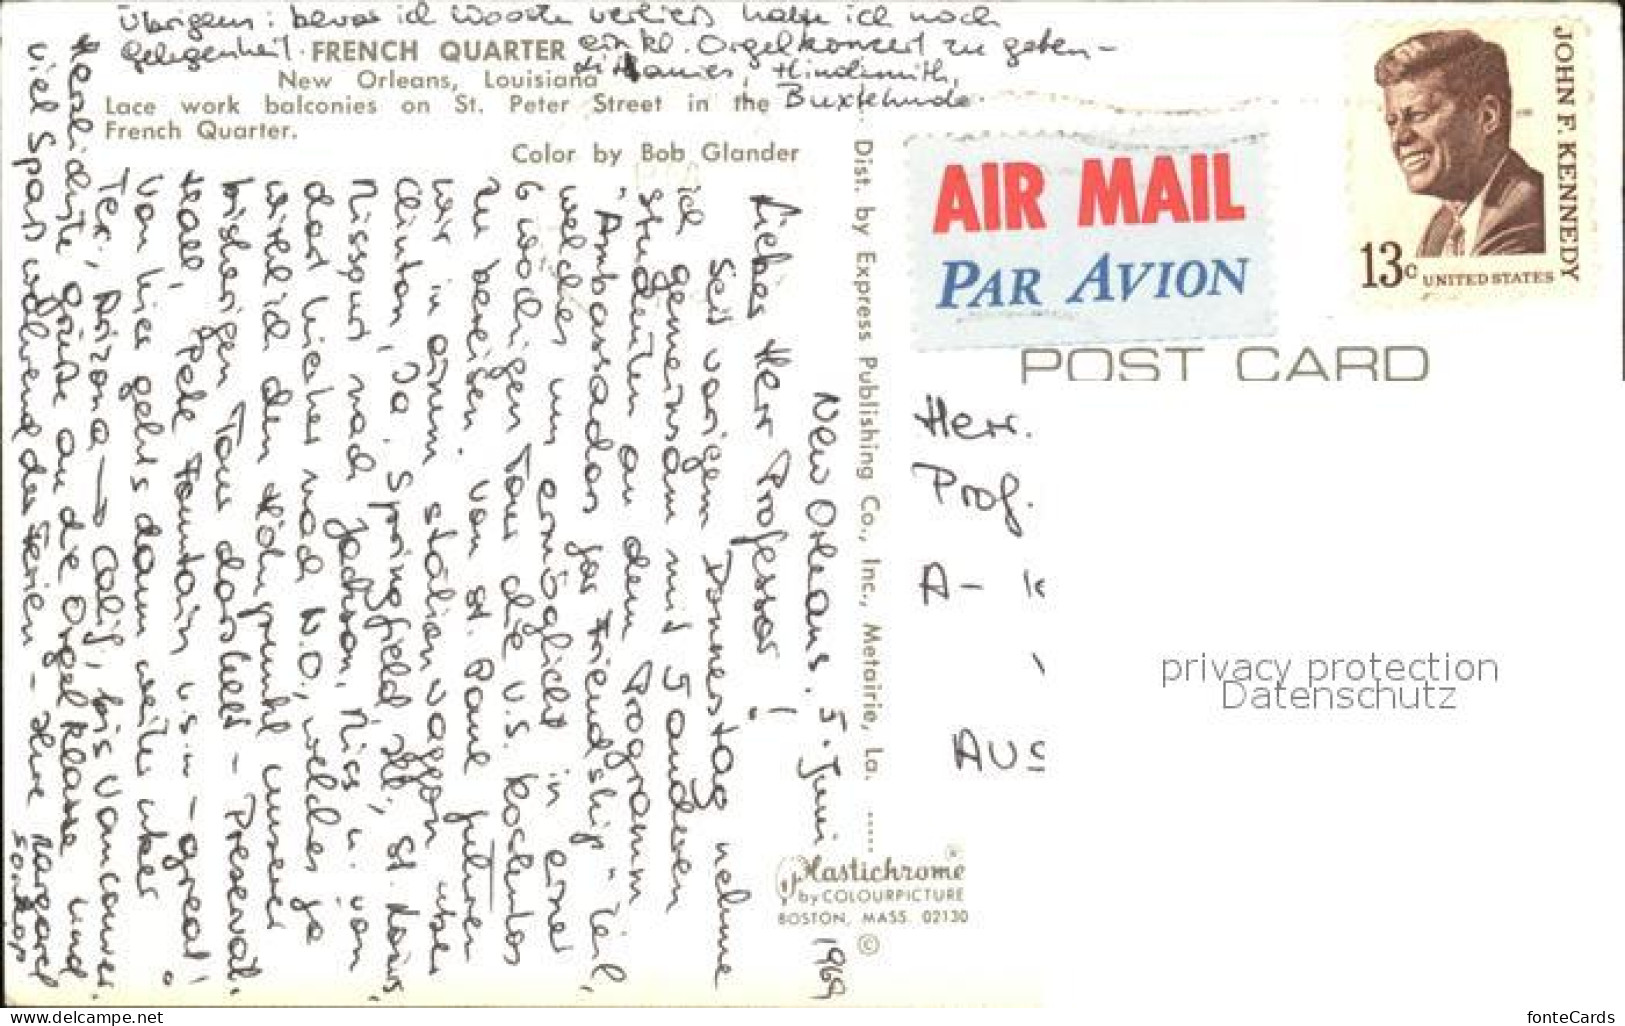 Übrigens: bevor ich Wooster verließ hatte ich noch
Gelegenheit ein kl. Orgelkonzert zu geben –
Hindemith,
Buxtehude.
FRENCH QUARTER
New Orleans, Louisiana
Lace work balconies on St. Peter Street in the
French Quarter.
Color by Bob Glander
New Orleans, 5. Juni 1969
Lieber Herr Professor!
Seit vorigem Donnerstag nehme
ich gemeinsam mit 5 anderen
Studenten an dem Programm
"Ambassador for Friendship" teil,
welches uns ermöglicht in einer
6 wöchigen Tour die U.S. kostenlos
zu bereisen. Von St. Paul fuhren
wir in einem station waggon über
Clinton, Io., Springfield, Ill., St. Louis,
Missouri nach Jackson, Miss u. von
dort hierher nach N.O., welches ja
wirklich den Höhepunkt unserer
bisherigen Tour darstellt – Preservat.
Hall, Pete Fountain u.s.w – great!
Von hier gehts dann weiter über
Tex., Arizona → Calif, bis Vancouver.
Herzlichste Grüße an die Orgelklasse und
viel Spaß während der Ferien – Ihre Margaret
Dist. by Express Publishing Co., Inc., Metairie, La. .....
Plastichrome ®
by COLOURPICTURE
BOSTON, MASS. 02130
©
AIR MAIL
PAR AVION
JOHN F. KENNEDY
13c UNITED STATES
POST CARD
Herr.
Prof.
A –
AUS
privacy protection
Datenschutz
www.delcampe.net
fonteCards